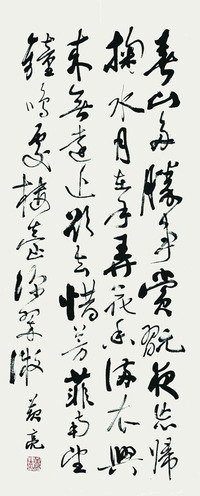 春山多勝事賞翫夜忘歸
掬水月在手弄花香滿衣興
來無遠近欲去惜芳菲南望
鐘鳴處樓臺深翠微